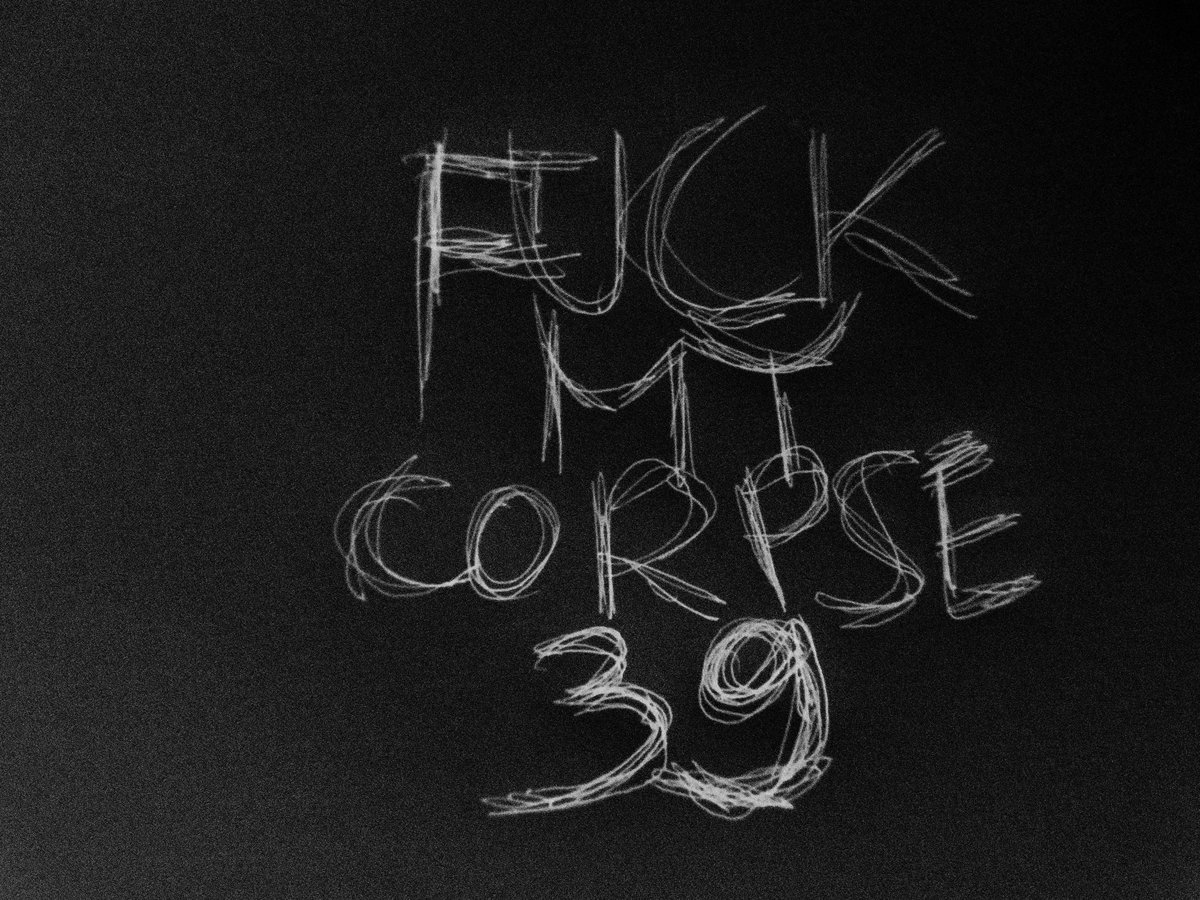 FUCK
MY
CORPSE
39